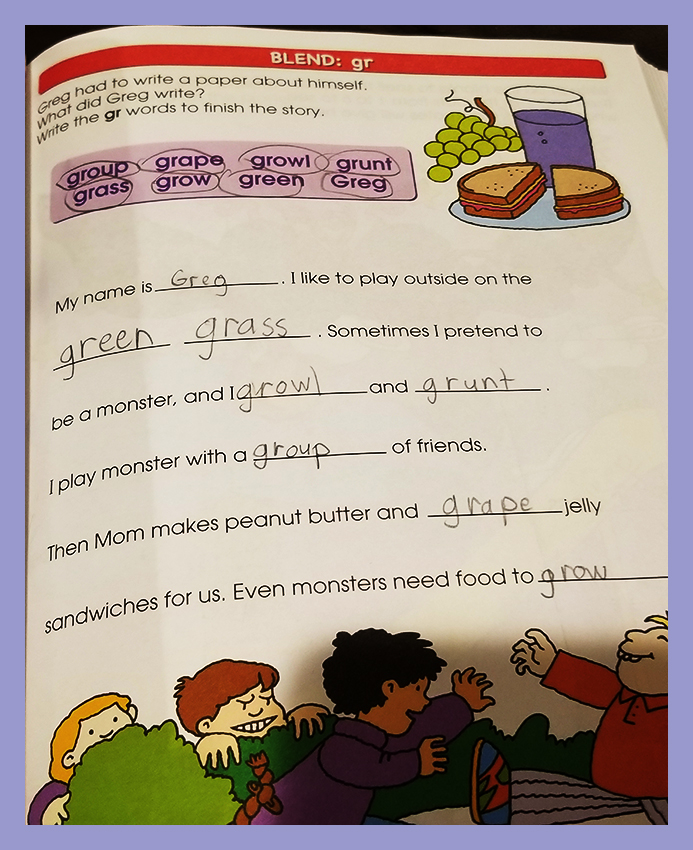 BLEND: gr
Greg had to write a paper about himself.
What did Greg write?
Write the gr words to finish the story.
group grape growl grunt
grass grow green Greg
My name is Greg. I like to play outside on the
green grass. Sometimes I pretend to
be a monster, and I growl and grunt.
I play monster with a group of friends.
Then Mom makes peanut butter and grape jelly
sandwiches for us. Even monsters need food to grow